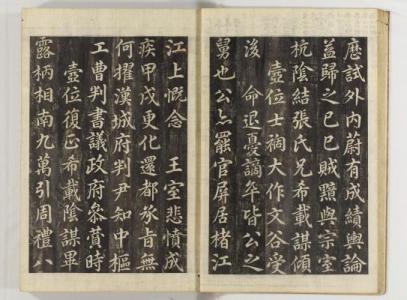 歷試外内蔚有成績輿論
益歸之己巳賊黯與宗室
杭陰結張氏兄希載謀傾
壼位士禍大作文谷受
後命退憂謫卒皆公之
舅也公亦罷官屏居楮江
江上慨念王室悲憤成
疾甲戌更化還都承旨無
何擢漢城府判尹知中樞
工曹判書議政府叅贊時
壼位復正希載陰謀畢
露柄相南九萬引周禮八